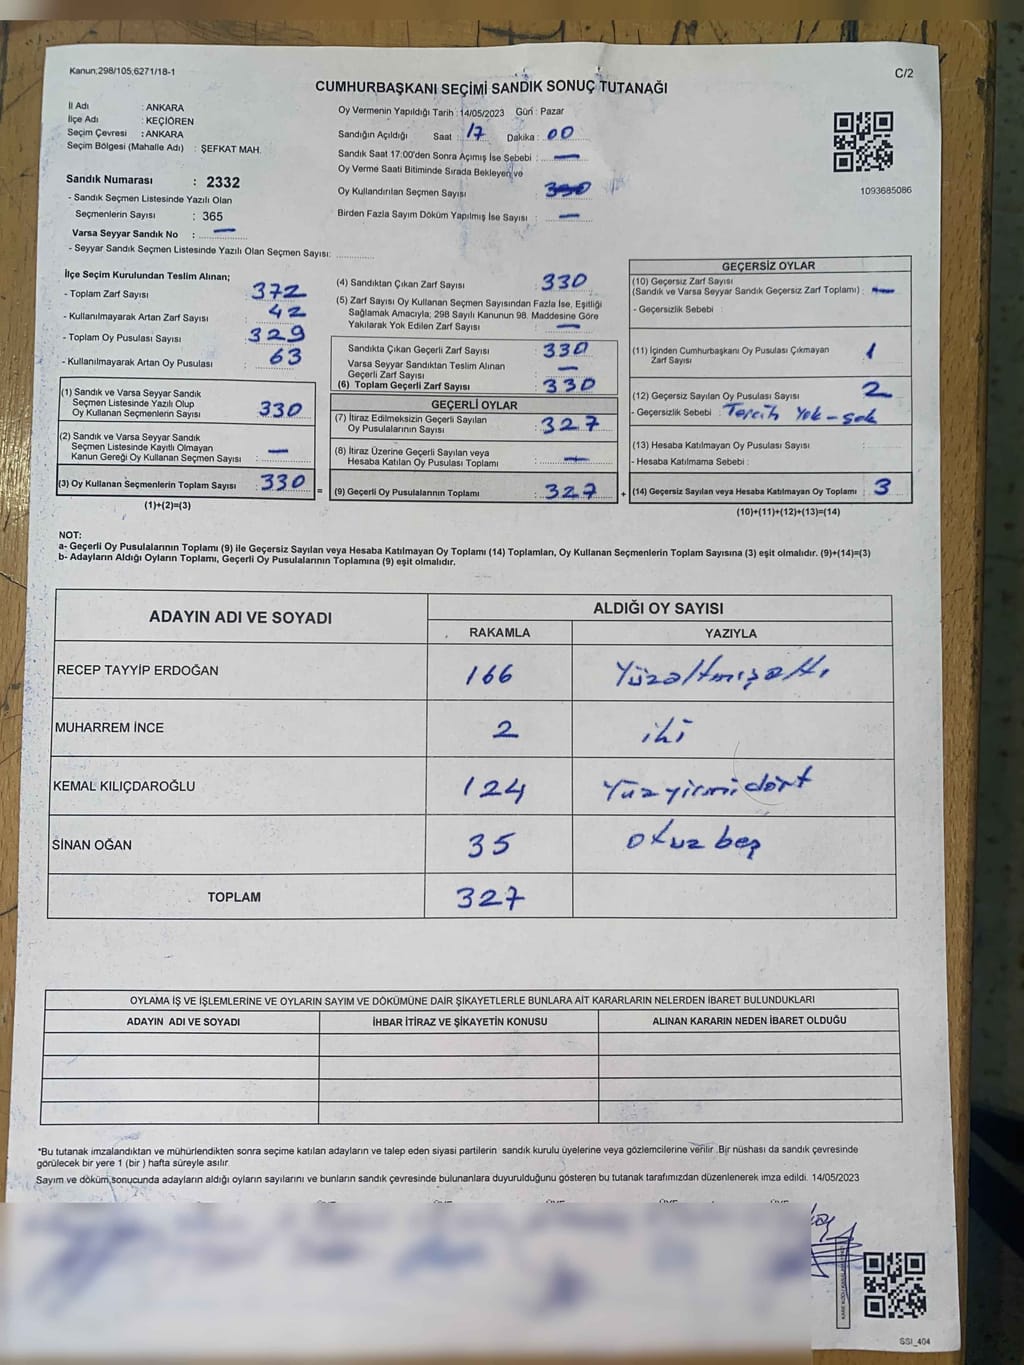 Kanun;298/105;6271/18-1
C/2
CUMHURBAŞKANI SEÇİMİ SANDIK SONUÇ TUTANAĞI
İl Adı : ANKARA
İlçe Adı : KEÇİÖREN
Seçim Çevresi : ANKARA
Seçim Bölgesi (Mahalle Adı) : ŞEFKAT MAH.
Sandık Numarası : 2332
- Sandık Seçmen Listesinde Yazılı Olan
Seçmenlerin Sayısı : 365
Varsa Seyyar Sandık No : —
- Seyyar Sandık Seçmen Listesinde Yazılı Olan Seçmen Sayısı: ..............
Oy Vermenin Yapıldığı Tarih : 14/05/2023 Gün : Pazar
Sandığın Açıldığı Saat : 17 Dakika : 00
Sandık Saat 17:00'den Sonra Açımış İse Sebebi : —
Oy Verme Saati Bitiminde Sırada Bekleyen ve
Oy Kullandırılan Seçmen Sayısı :
Birden Fazla Sayım Döküm Yapılmış İse Sayısı : —
1093685086
İlçe Seçim Kurulundan Teslim Alınan;
- Toplam Zarf Sayısı : 372
- Kullanılmayarak Artan Zarf Sayısı : 42
- Toplam Oy Pusulası Sayısı : 329
- Kullanılmayarak Artan Oy Pusulası : 63
(1) Sandık ve Varsa Seyyar Sandık
Seçmen Listesinde Yazılı Olup
Oy Kullanan Seçmenlerin Sayısı : 330
(2) Sandık ve Varsa Seyyar Sandık
Seçmen Listesinde Kayıtlı Olmayan
Kanun Gereği Oy Kullanan Seçmen Sayısı : —
(3) Oy Kullanan Seçmenlerin Toplam Sayısı : 330 =
(1)+(2)=(3)
(4) Sandıktan Çıkan Zarf Sayısı : 330
(5) Zarf Sayısı Oy Kullanan Seçmen Sayısından Fazla İse, Eşitliği
Sağlamak Amacıyla; 298 Sayılı Kanunun 98. Maddesine Göre
Yakılarak Yok Edilen Zarf Sayısı : —
Sandıkta Çıkan Geçerli Zarf Sayısı : 330
Varsa Seyyar Sandıktan Teslim Alınan
Geçerli Zarf Sayısı : —
(6) Toplam Geçerli Zarf Sayısı : 330
GEÇERLİ OYLAR
(7) İtiraz Edilmeksizin Geçerli Sayılan
Oy Pusulalarının Sayısı : 327
(8) İtiraz Üzerine Geçerli Sayılan veya
Hesaba Katılan Oy Pusulası Toplamı : —
(9) Geçerli Oy Pusulalarının Toplamı : 327 +
GEÇERSİZ OYLAR
(10) Geçersiz Zarf Sayısı
(Sandık ve Varsa Seyyar Sandık Geçersiz Zarf Toplamı) : —
- Geçersizlik Sebebi :
(11) İçinden Cumhurbaşkanı Oy Pusulası Çıkmayan
Zarf Sayısı : 1
(12) Geçersiz Sayılan Oy Pusulası Sayısı : 2
- Geçersizlik Sebebi : Tercih Yok -
(13) Hesaba Katılmayan Oy Pusulası Sayısı :
- Hesaba Katılmama Sebebi :
(14) Geçersiz Sayılan veya Hesaba Katılmayan Oy Toplamı : 3
(10)+(11)+(12)+(13)=(14)
NOT:
a- Geçerli Oy Pusulalarının Toplamı (9) ile Geçersiz Sayılan veya Hesaba Katılmayan Oy Toplamı (14) Toplamları, Oy Kullanan Seçmenlerin Toplam Sayısına (3) eşit olmalıdır. (9)+(14)=(3)
b- Adayların Aldığı Oyların Toplamı, Geçerli Oy Pusulalarının Toplamına (9) eşit olmalıdır.
ADAYIN ADI VE SOYADI ALDIĞI OY SAYISI
RAKAMLA YAZIYLA
RECEP TAYYİP ERDOĞAN 166 Yüzaltmışaltı
MUHARREM İNCE 2 iki
KEMAL KILIÇDAROĞLU 124 Yüzyirmidört
SİNAN OĞAN 35 otuz beş
TOPLAM 327
OYLAMA İŞ VE İŞLEMLERİNE VE OYLARIN SAYIM VE DÖKÜMÜNE DAİR ŞİKAYETLERLE BUNLARA AİT KARARLARIN NELERDEN İBARET BULUNDUKLARI
ADAYIN ADI VE SOYADI İHBAR İTİRAZ VE ŞİKAYETİN KONUSU ALINAN KARARIN NEDEN İBARET OLDUĞU
*Bu tutanak imzalandıktan ve mühürlendikten sonra seçime katılan adayların ve talep eden siyasi partilerin sandık kurulu üyelerine veya gözlemcilerine verilir .Bir nüshası da sandık çevresinde
görülecek bir yere 1 (bir ) hafta süreyle asılır.
Sayım ve döküm sonucunda adayların aldığı oyların sayılarını ve bunların sandık çevresinde bulunanlara duyurulduğunu gösteren bu tutanak tarafımızdan düzenlenerek imza edildi. 14/05/2023
SSI_404